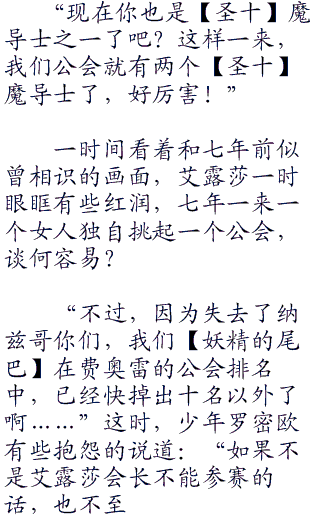 “现在你也是【圣十】魔
导士之一了吧？这样一来，
我们公会就有两个【圣十】
魔导士了，好厉害！”
一时间看着和七年前似
曾相识的画面，艾露莎一时
眼眶有些红润，七年一来一
个女人独自挑起一个公会，
谈何容易？
“不过，因为失去了纳
兹哥你们，我们【妖精的尾
巴】在费奥雷的公会排名
中，已经快掉出十名以外了
啊……”这时，少年罗密欧
有些抱怨的说道：“如果不
是艾露莎会长不能参赛的
话，也不至